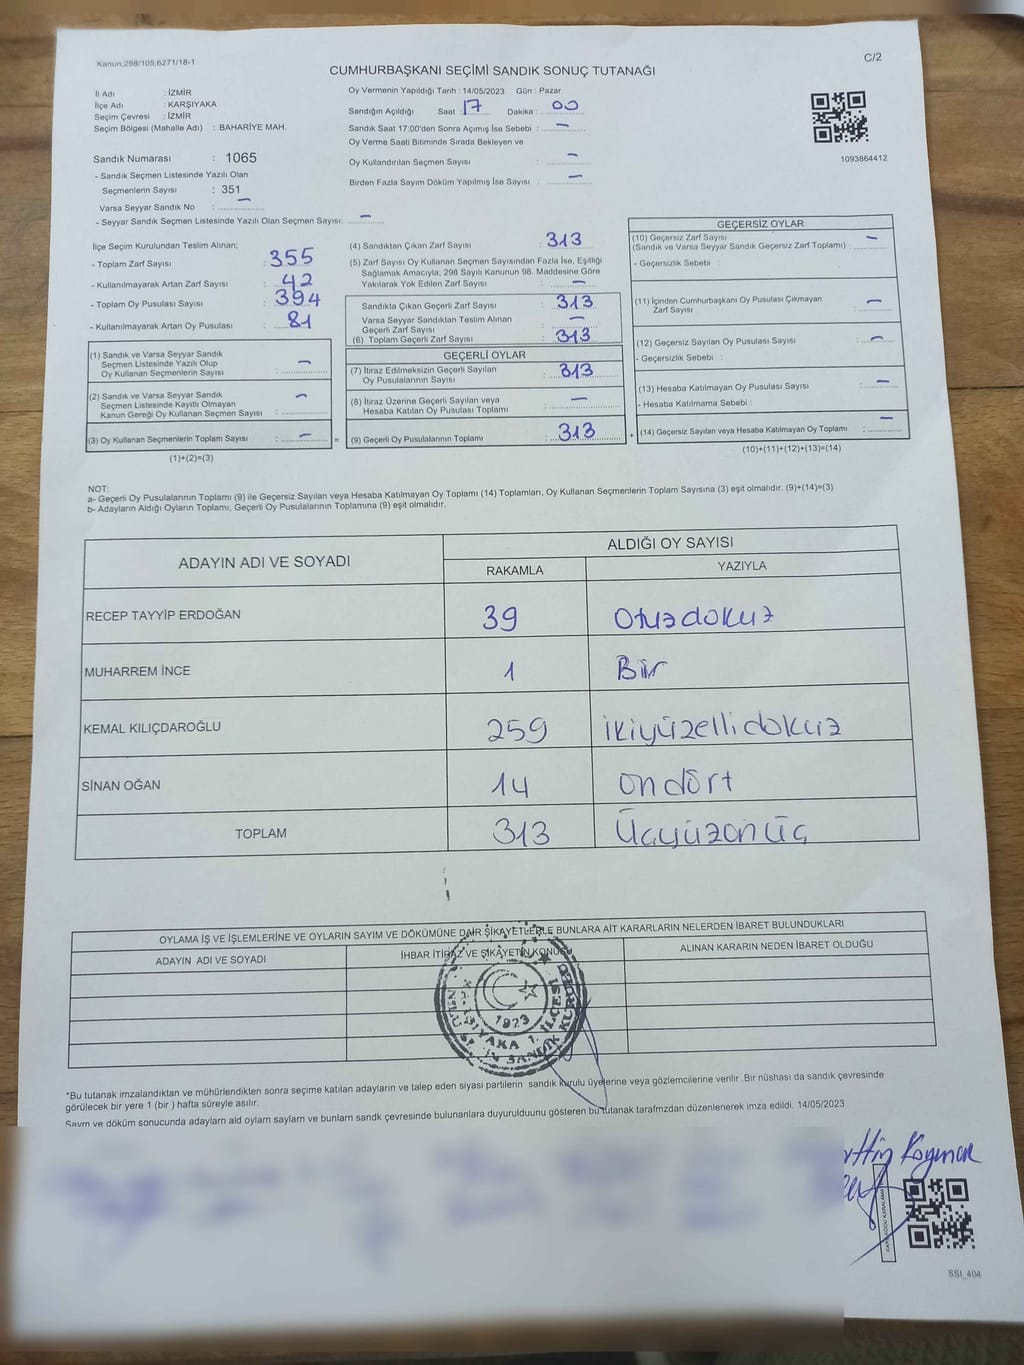 Kanun:298/105;6271/18-1
C/2
CUMHURBAŞKANI SEÇİMİ SANDIK SONUÇ TUTANAĞI
İl Adı : İZMİR
İlçe Adı : KARŞIYAKA
Seçim Çevresi : İZMİR
Seçim Bölgesi (Mahalle Adı) : BAHARİYE MAH.
Sandık Numarası : 1065
- Sandık Seçmen Listesinde Yazılı Olan
Seçmenlerin Sayısı : 351
Varsa Seyyar Sandık No : —
- Seyyar Sandık Seçmen Listesinde Yazılı Olan Seçmen Sayısı: —
Oy Vermenin Yapıldığı Tarih : 14/05/2023 Gün : Pazar
Sandığın Açıldığı Saat : 17 Dakika : 00
Sandık Saat 17:00'den Sonra Açımış İse Sebebi : —
Oy Verme Saati Bitiminde Sırada Bekleyen ve
Oy Kullandırılan Seçmen Sayısı : —
Birden Fazla Sayım Döküm Yapılmış İse Sayısı : —
1093864412
İlçe Seçim Kurulundan Teslim Alınan;
- Toplam Zarf Sayısı : 355
- Kullanılmayarak Artan Zarf Sayısı : 42
- Toplam Oy Pusulası Sayısı : 394
- Kullanılmayarak Artan Oy Pusulası : 81
(1) Sandık ve Varsa Seyyar Sandık
Seçmen Listesinde Yazılı Olup
Oy Kullanan Seçmenlerin Sayısı : —
(2) Sandık ve Varsa Seyyar Sandık
Seçmen Listesinde Kayıtlı Olmayan
Kanun Gereği Oy Kullanan Seçmen Sayısı : —
(3) Oy Kullanan Seçmenlerin Toplam Sayısı : — =
(1)+(2)=(3)
(4) Sandıktan Çıkan Zarf Sayısı : 313
(5) Zarf Sayısı Oy Kullanan Seçmen Sayısından Fazla İse, Eşitliği
Sağlamak Amacıyla; 298 Sayılı Kanunun 98. Maddesine Göre
Yakılarak Yok Edilen Zarf Sayısı : —
Sandıkta Çıkan Geçerli Zarf Sayısı : 313
Varsa Seyyar Sandıktan Teslim Alınan
Geçerli Zarf Sayısı : —
(6) Toplam Geçerli Zarf Sayısı : 313
GEÇERLİ OYLAR
(7) İtiraz Edilmeksizin Geçerli Sayılan
Oy Pusulalarının Sayısı : 313
(8) İtiraz Üzerine Geçerli Sayılan veya
Hesaba Katılan Oy Pusulası Toplamı : —
(9) Geçerli Oy Pusulalarının Toplamı : 313 +
GEÇERSİZ OYLAR
(10) Geçersiz Zarf Sayısı
(Sandık ve Varsa Seyyar Sandık Geçersiz Zarf Toplamı) : —
- Geçersizlik Sebebi :
(11) İçinden Cumhurbaşkanı Oy Pusulası Çıkmayan
Zarf Sayısı : —
(12) Geçersiz Sayılan Oy Pusulası Sayısı : —
- Geçersizlik Sebebi :
(13) Hesaba Katılmayan Oy Pusulası Sayısı : —
- Hesaba Katılmama Sebebi :
(14) Geçersiz Sayılan veya Hesaba Katılmayan Oy Toplamı : —
(10)+(11)+(12)+(13)=(14)
NOT:
a- Geçerli Oy Pusulalarının Toplamı (9) ile Geçersiz Sayılan veya Hesaba Katılmayan Oy Toplamı (14) Toplamları, Oy Kullanan Seçmenlerin Toplam Sayısına (3) eşit olmalıdır. (9)+(14)=(3)
b- Adayların Aldığı Oyların Toplamı, Geçerli Oy Pusulalarının Toplamına (9) eşit olmalıdır.
ADAYIN ADI VE SOYADI ALDIĞI OY SAYISI
RAKAMLA YAZIYLA
RECEP TAYYİP ERDOĞAN 39 Otuzdokuz
MUHARREM İNCE 1 Bir
KEMAL KILIÇDAROĞLU 259 ikiyüzellidokuz
SİNAN OĞAN 14 ondört
TOPLAM 313 Üçyüzonüç
OYLAMA İŞ VE İŞLEMLERİNE VE OYLARIN SAYIM VE DÖKÜMÜNE DAİR ŞİKAYETLERLE BUNLARA AİT KARARLARIN NELERDEN İBARET BULUNDUKLARI
ADAYIN ADI VE SOYADI İHBAR İTİRAZ VE ŞİKAYETİN KONUSU ALINAN KARARIN NEDEN İBARET OLDUĞU
1923
*Bu tutanak imzalandıktan ve mühürlendikten sonra seçime katılan adayların ve talep eden siyasi partilerin sandık kurulu üyelerine veya gözlemcilerine verilir .Bir nüshası da sandık çevresinde
görülecek bir yere 1 (bir ) hafta süreyle asılır.
Sayım ve döküm sonucunda adaylarn ald oylarn saylarn ve bunlarn sandk çevresinde bulunanlara duyurulduunu gösteren bu tutanak tarafmzdan düzenlenerek imza edildi. 14/05/2023
SSI_404